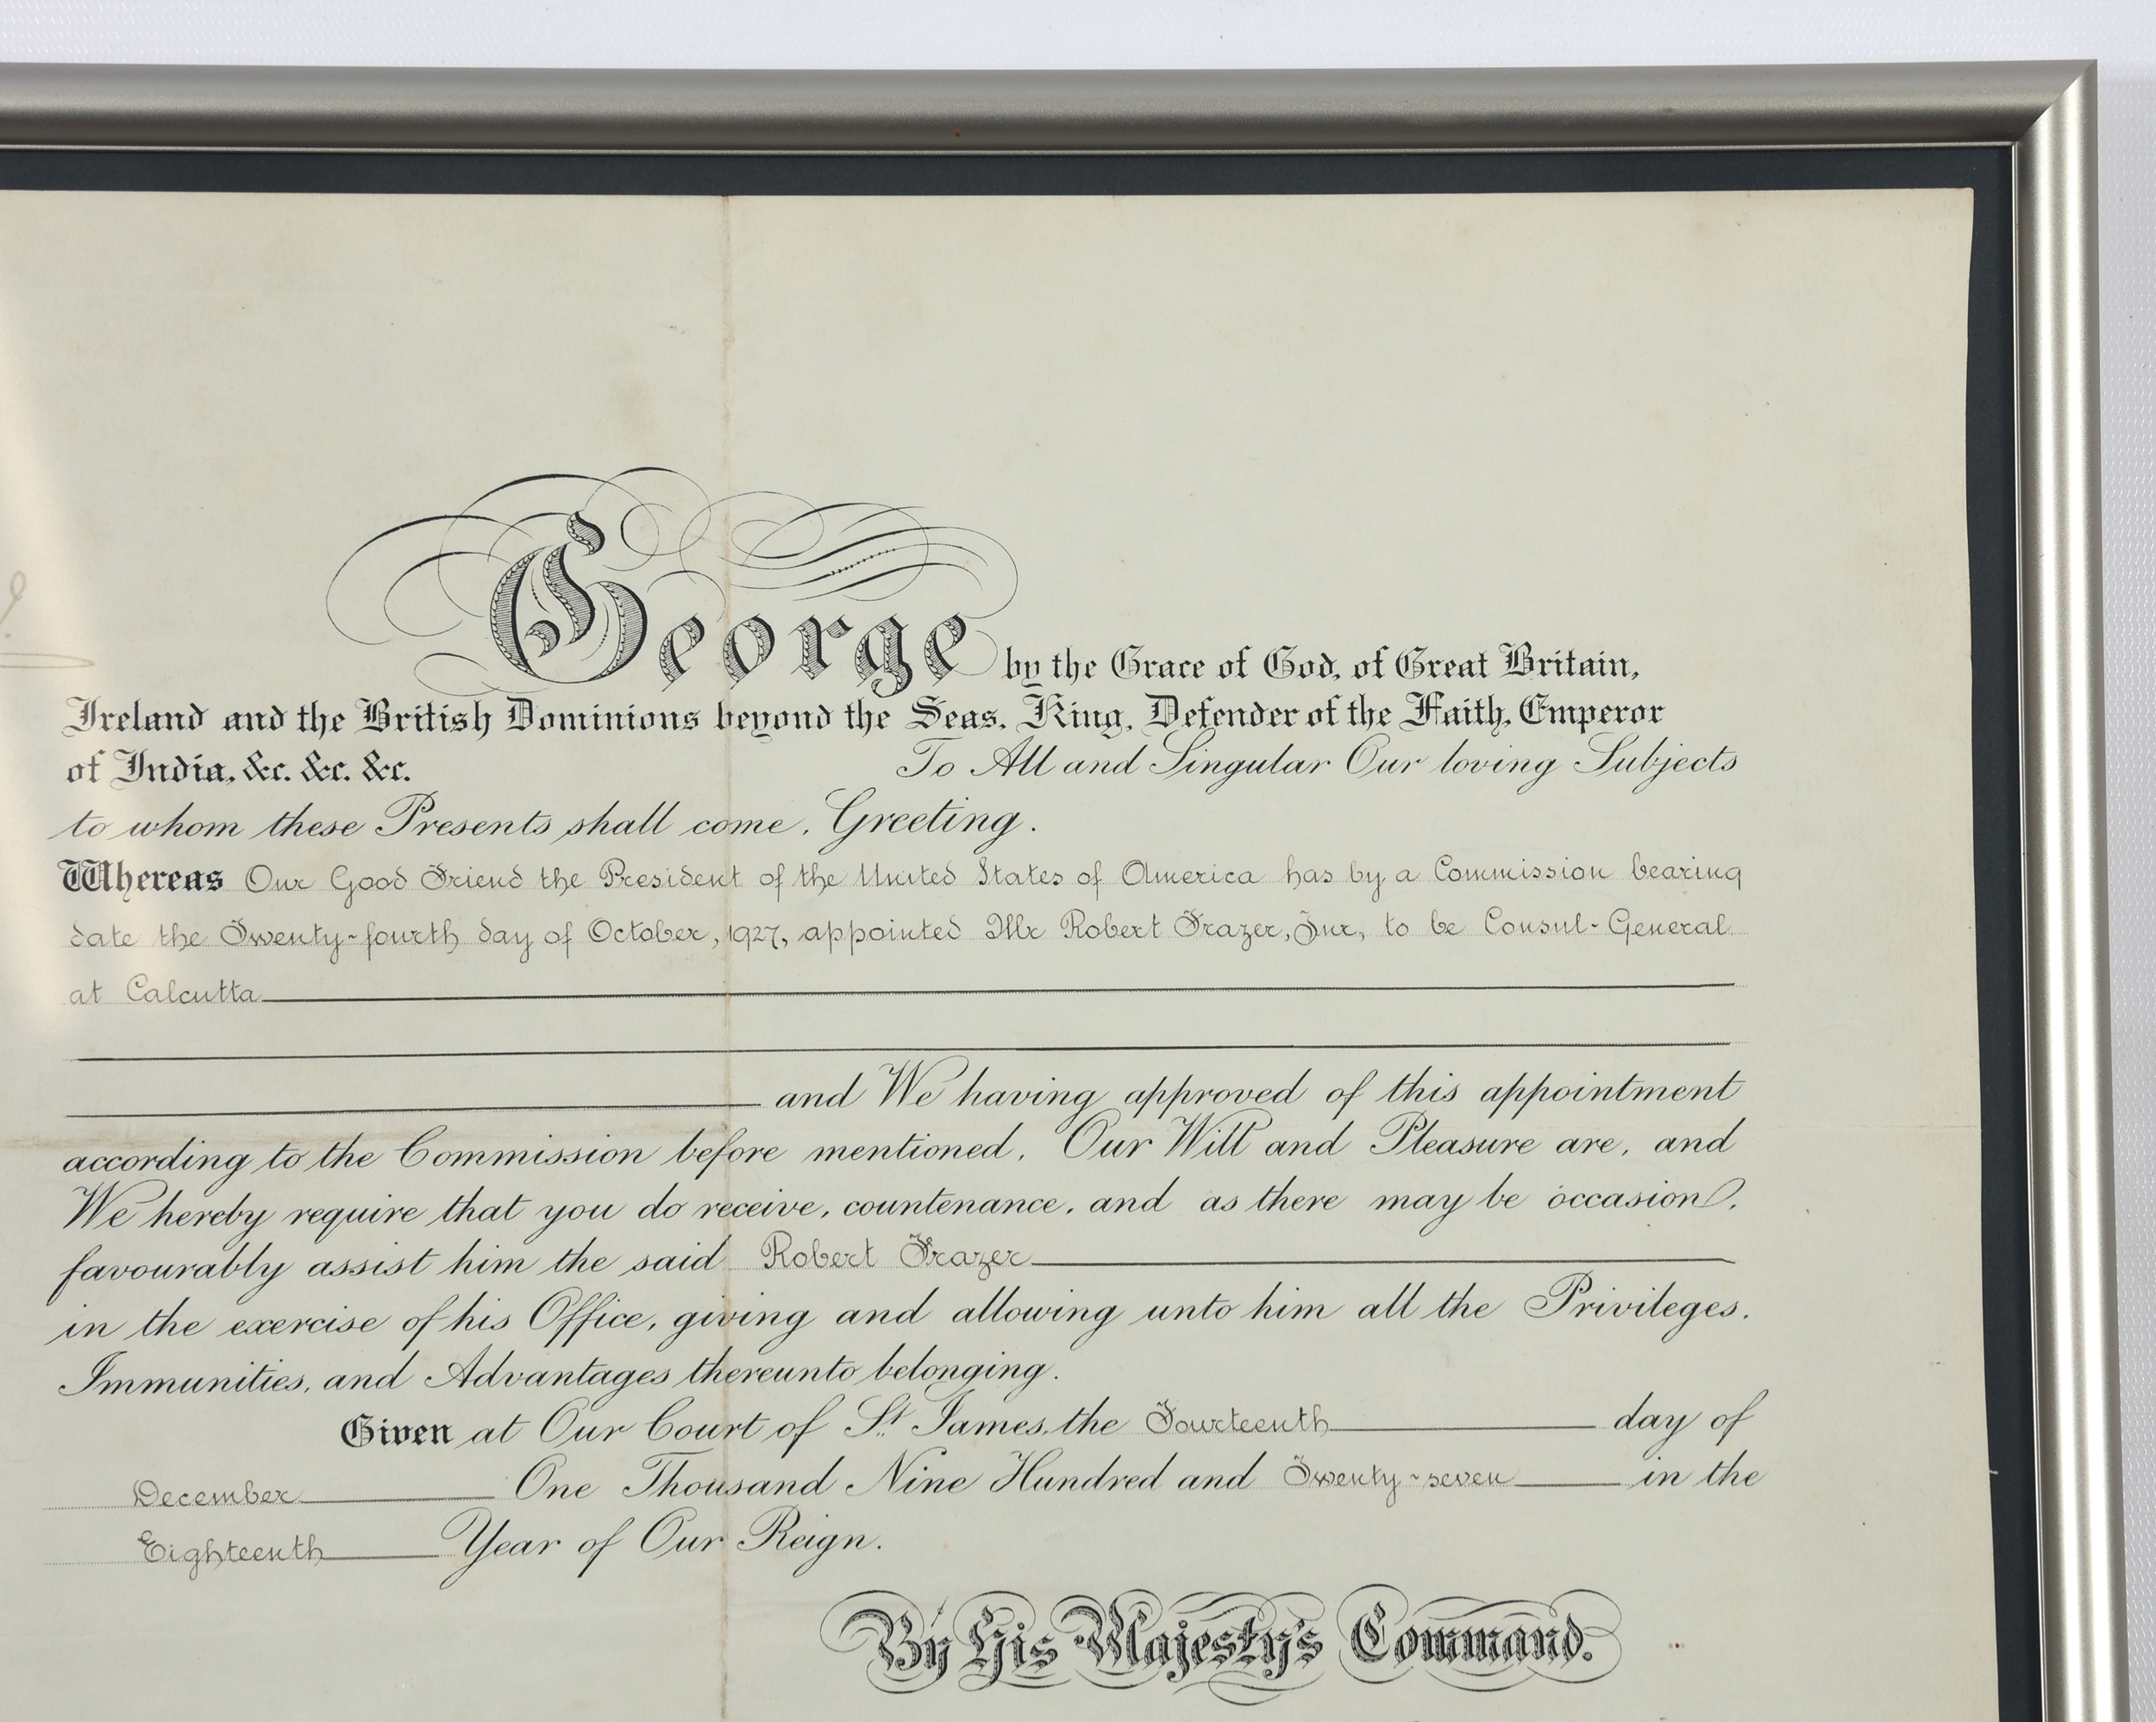 George by the Grace of God, of Great Britain,
Ireland and the British Dominions beyond the Seas, King, Defender of the Faith, Emperor
of India, &c. &c. &c. To All and Singular Our loving Subjects
to whom these Presents shall come, Greeting.
Whereas Our Good Friend the President of the United States of America has by a Commission bearing
date the Twenty-fourth day of October, 1927, appointed Mr Robert Frazer, Jnr, to be Consul-General
at Calcutta
and We having approved of this appointment
according to the Commission before mentioned, Our Will and Pleasure are, and
We hereby require that you do receive, countenance, and as there may be occasion,
favourably assist him the said Robert Frazer
in the exercise of his Office, giving and allowing unto him all the Privileges,
Immunities, and Advantages thereunto belonging.
Given at Our Court of St James, the Fourteenth day of
December One Thousand Nine Hundred and Twenty-seven in the
Eighteenth Year of Our Reign.
By His Majesty's Command.